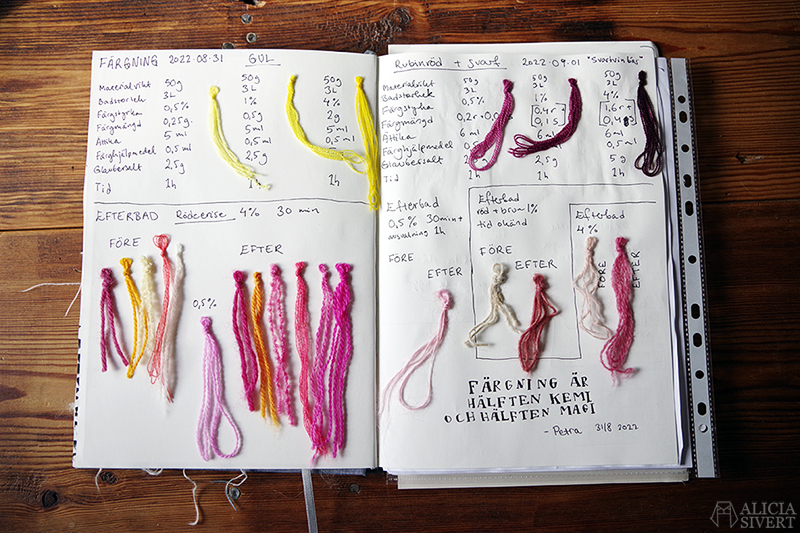 FÄRGNING 2022.08.31 GUL
Materialvikt 50g 50g 50g
Badstorlek 3L 3L 3L
Färgstyrka 0,5% 1% 4%
Färgmängd 0,25g. 0,5g 2g
Ättika 5 ml 5 ml 5 ml
Färghjälpmedel 0,5 ml 0,5 ml 0,5 ml
Glaubersalt 2,5g 2,5g
Tid 1h 1h 1h
EFTERBAD Rödcerise 4% 30 min
FÖRE
EFTER
0,5%
Rubinröd + Svart 2022.09.01 "Svartvinbär"
Materialvikt 50g 50g 50g
Badstorlek 3L 3L 3L
Färgstyrka 0,5% 1% 4%
Färgmängd 0,2r+0,0 0,4r+ 0,1s 1,6r+ 0,4s
Ättika 6 ml 6 ml 6 ml
Färghjälpmedel 0,5 ml 0,5 ml
Glaubersalt 2,5g 5g
Tid 1h 1h 1h
Efterbad
0,5% 30min +
avsvalning 1h
FÖRE
EFTER
Efterbad
röd + brun 1%
tid okänd
FÖRE
EFTER
Efterbad
4%
FÖRE
EFTER
FÄRGNING ÄR
HÄLFTEN KEMI
OCH HÄLFTEN MAGI
- Petra 31/8 2022
ALICIA
SIVERT